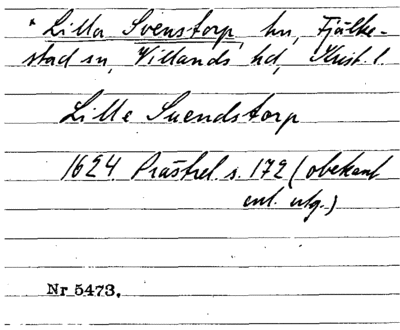 * Lilla Svenstorp, hn, Fjälke-
stad sn, Villands hd, Krist. l.
Lille Suendstorp
1624 Prästrel s. 172 (obekant
enl. utg.)
Nr 5473.